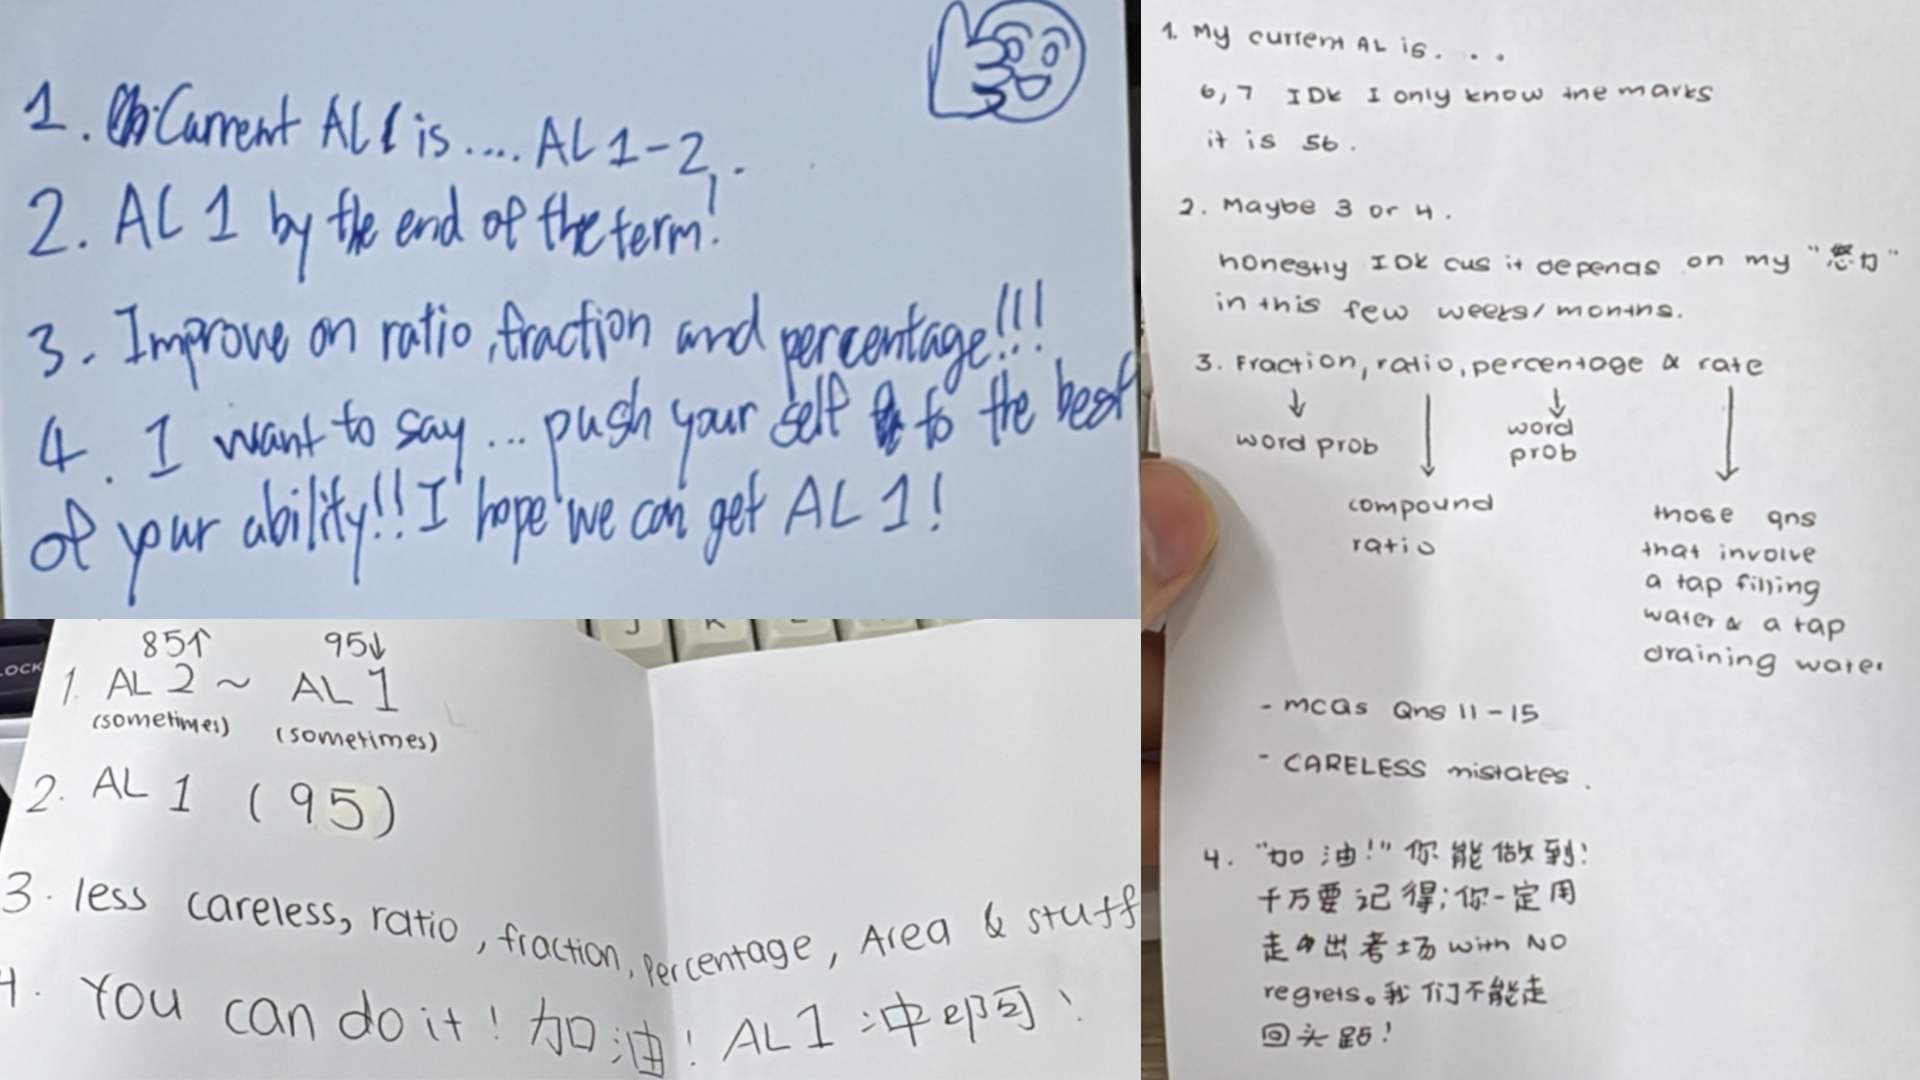 1. Current AL is .... AL 1-2,.
2. AL 1 by the end of the term!
3. Improve on ratio, fraction and percentage!!!
4. I want to say... push your self to the best
of your ability!! I hope we can get AL 1!
85↑ 95↓
1. AL 2 ~ AL 1
(sometimes) (sometimes)
2. AL 1 (95)
3. less careless, ratio, fraction, percentage, Area & stuff
4. You can do it! 加油! AL 1 冲啊!
1. My current AL is. . .
6, 7 IDK I only know the marks
it is 56.
2. Maybe 3 or 4.
honestly IDK cus it depends on my "力"
in this few weeks/months.
3. Fraction, ratio, percentage & rate
word prob
word
prob
compound
ratio
those qns
that involve
a tap filling
water & a tap
draining water
- MCQs Qns 11-15
- CARELESS mistakes.
4. "加油!" 你能做到!
千万要记得; 你一定用
走出考场 with NO
regrets。我们不能走
回头路!
J K L
LOCK